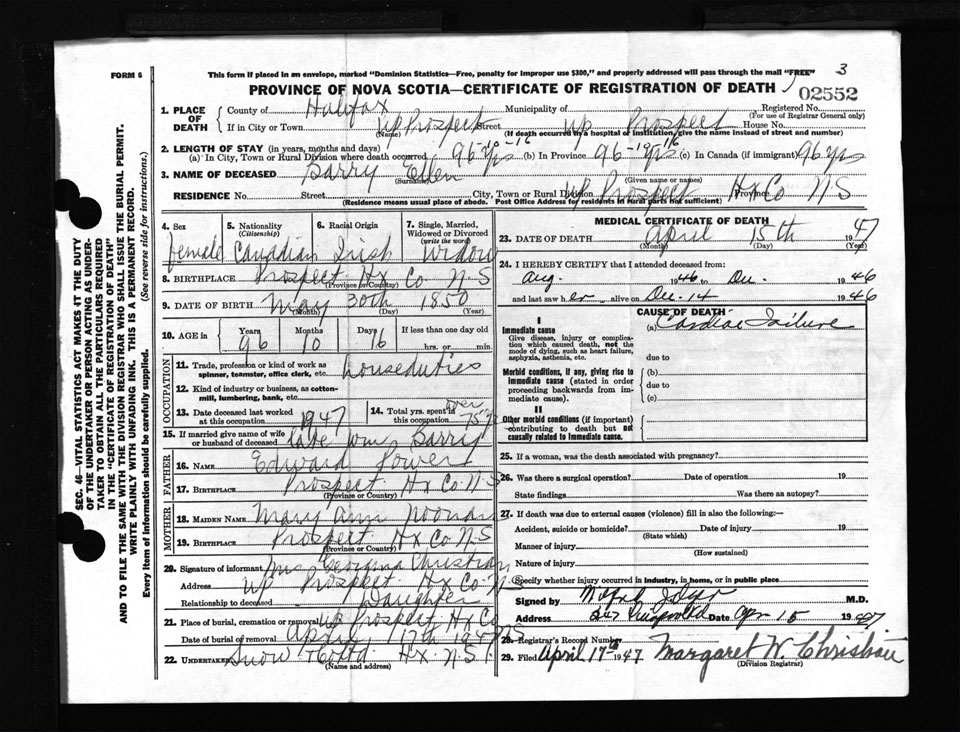 FORM 6
This form if placed in an envelope, marked "Dominion Statistics—Free, penalty for improper use $300," and properly addressed will pass through the mail "FREE"
3
PROVINCE OF NOVA SCOTIA—CERTIFICATE OF REGISTRATION OF DEATH
02552
1. PLACE OF DEATH
County of Halifax Municipality of Registered No.
(For use of Registrar General only)
If in City or Town Up Prospect Street Up Prospect House No.
(Name) (If death occurred in a hospital or institution, give the name instead of street and number)
2. LENGTH OF STAY (in years, months and days)
(a) In City, Town or Rural Division where death occurred 96 yrs-10-16 (b) In Province 96-10-16 yrs (c) In Canada (if immigrant) 96 yrs
3. NAME OF DECEASED Barry Ellen
(Surname) (Given name or names)
RESIDENCE No. Street City, Town or Rural Division Up Prospect Province Hx Co N S
(Residence means usual place of abode. Post Office Address for residents in rural parts not sufficient)
4. Sex
female
5. Nationality
(Citizenship)
Canadian
6. Racial Origin
Irish
7. Single, Married, Widowed or Divorced
(write the word)
Widow
8. BIRTHPLACE Prospect Hx Co N S
(Province or Country)
9. DATE OF BIRTH May 30th 1850
(Month) (Day) (Year)
10. AGE in
Years 96
Months 10
Days 16
If less than one day old
hrs. or min.
OCCUPATION
11. Trade, profession or kind of work as spinner, teamster, office clerk, etc. houseduties
12. Kind of industry or business, as cotton-mill, lumbering, bank, etc.
13. Date deceased last worked at this occupation 1947
14. Total yrs. spent in this occupation over 75 yrs
15. If married give name of wife or husband of deceased late Wm Barry
FATHER
16. NAME Edward Power
17. BIRTHPLACE Prospect Hx Co. N S
(Province or Country)
MOTHER
18. MAIDEN NAME Mary Ann Noonan
19. BIRTHPLACE Prospect Hx Co N-S
(Province or Country)
20. Signature of informant Mrs Georgina Christian
Address Up Prospect Hx Co N S
Relationship to deceased Daughter
21. Place of burial, cremation or removal Up Prospect Hx Co N S
Date of burial or removal April 17th 1947
22. UNDERTAKER Snow & Co Ltd Hx. N.S.
(Name and address)
MEDICAL CERTIFICATE OF DEATH
23. DATE OF DEATH April 15th 1947
(Month) (Day) (Year)
24. I HEREBY CERTIFY that I attended deceased from:
Aug. 1946 to Dec. 1946
and last saw her alive on Dec. 14 1946
CAUSE OF DEATH
I
Immediate cause
Give disease, injury or complication which caused death, not the mode of dying, such as heart failure, asphyxia, asthenia, etc.
(a) Cardiac Failure
due to
Morbid conditions, if any, giving rise to immediate cause (stated in order proceeding backwards from immediate cause).
(b)
due to
(c)
II
Other morbid conditions (if important) contributing to death but not causally related to immediate cause.
25. If a woman, was the death associated with pregnancy?
26. Was there a surgical operation? Date of operation 19
State findings Was there an autopsy?
27. If death was due to external causes (violence) fill in also the following:—
Accident, suicide or homicide? Date of injury 19
(State which)
Manner of injury
(How sustained)
Nature of injury
Specify whether injury occurred in industry, in home, or in public place
Signed by M.D.
Address Date Apr 15 1947
28. Registrar's Record Number
29. Filed April 17th 1947 Margaret W. Christian
(Division Registrar)
SEC. 46—VITAL STATISTICS ACT MAKES IT THE DUTY
OF THE UNDERTAKER OR PERSON ACTING AS UNDER-
TAKER TO OBTAIN ALL THE PARTICULARS REQUIRED
IN THE "CERTIFICATE OF REGISTRATION OF DEATH"
AND TO FILE THE SAME WITH THE DIVISION REGISTRAR WHO SHALL ISSUE THE BURIAL PERMIT.
WRITE PLAINLY WITH UNFADING INK. THIS IS A PERMANENT RECORD.
Every item of information should be carefully supplied. (See reverse side for instructions.)